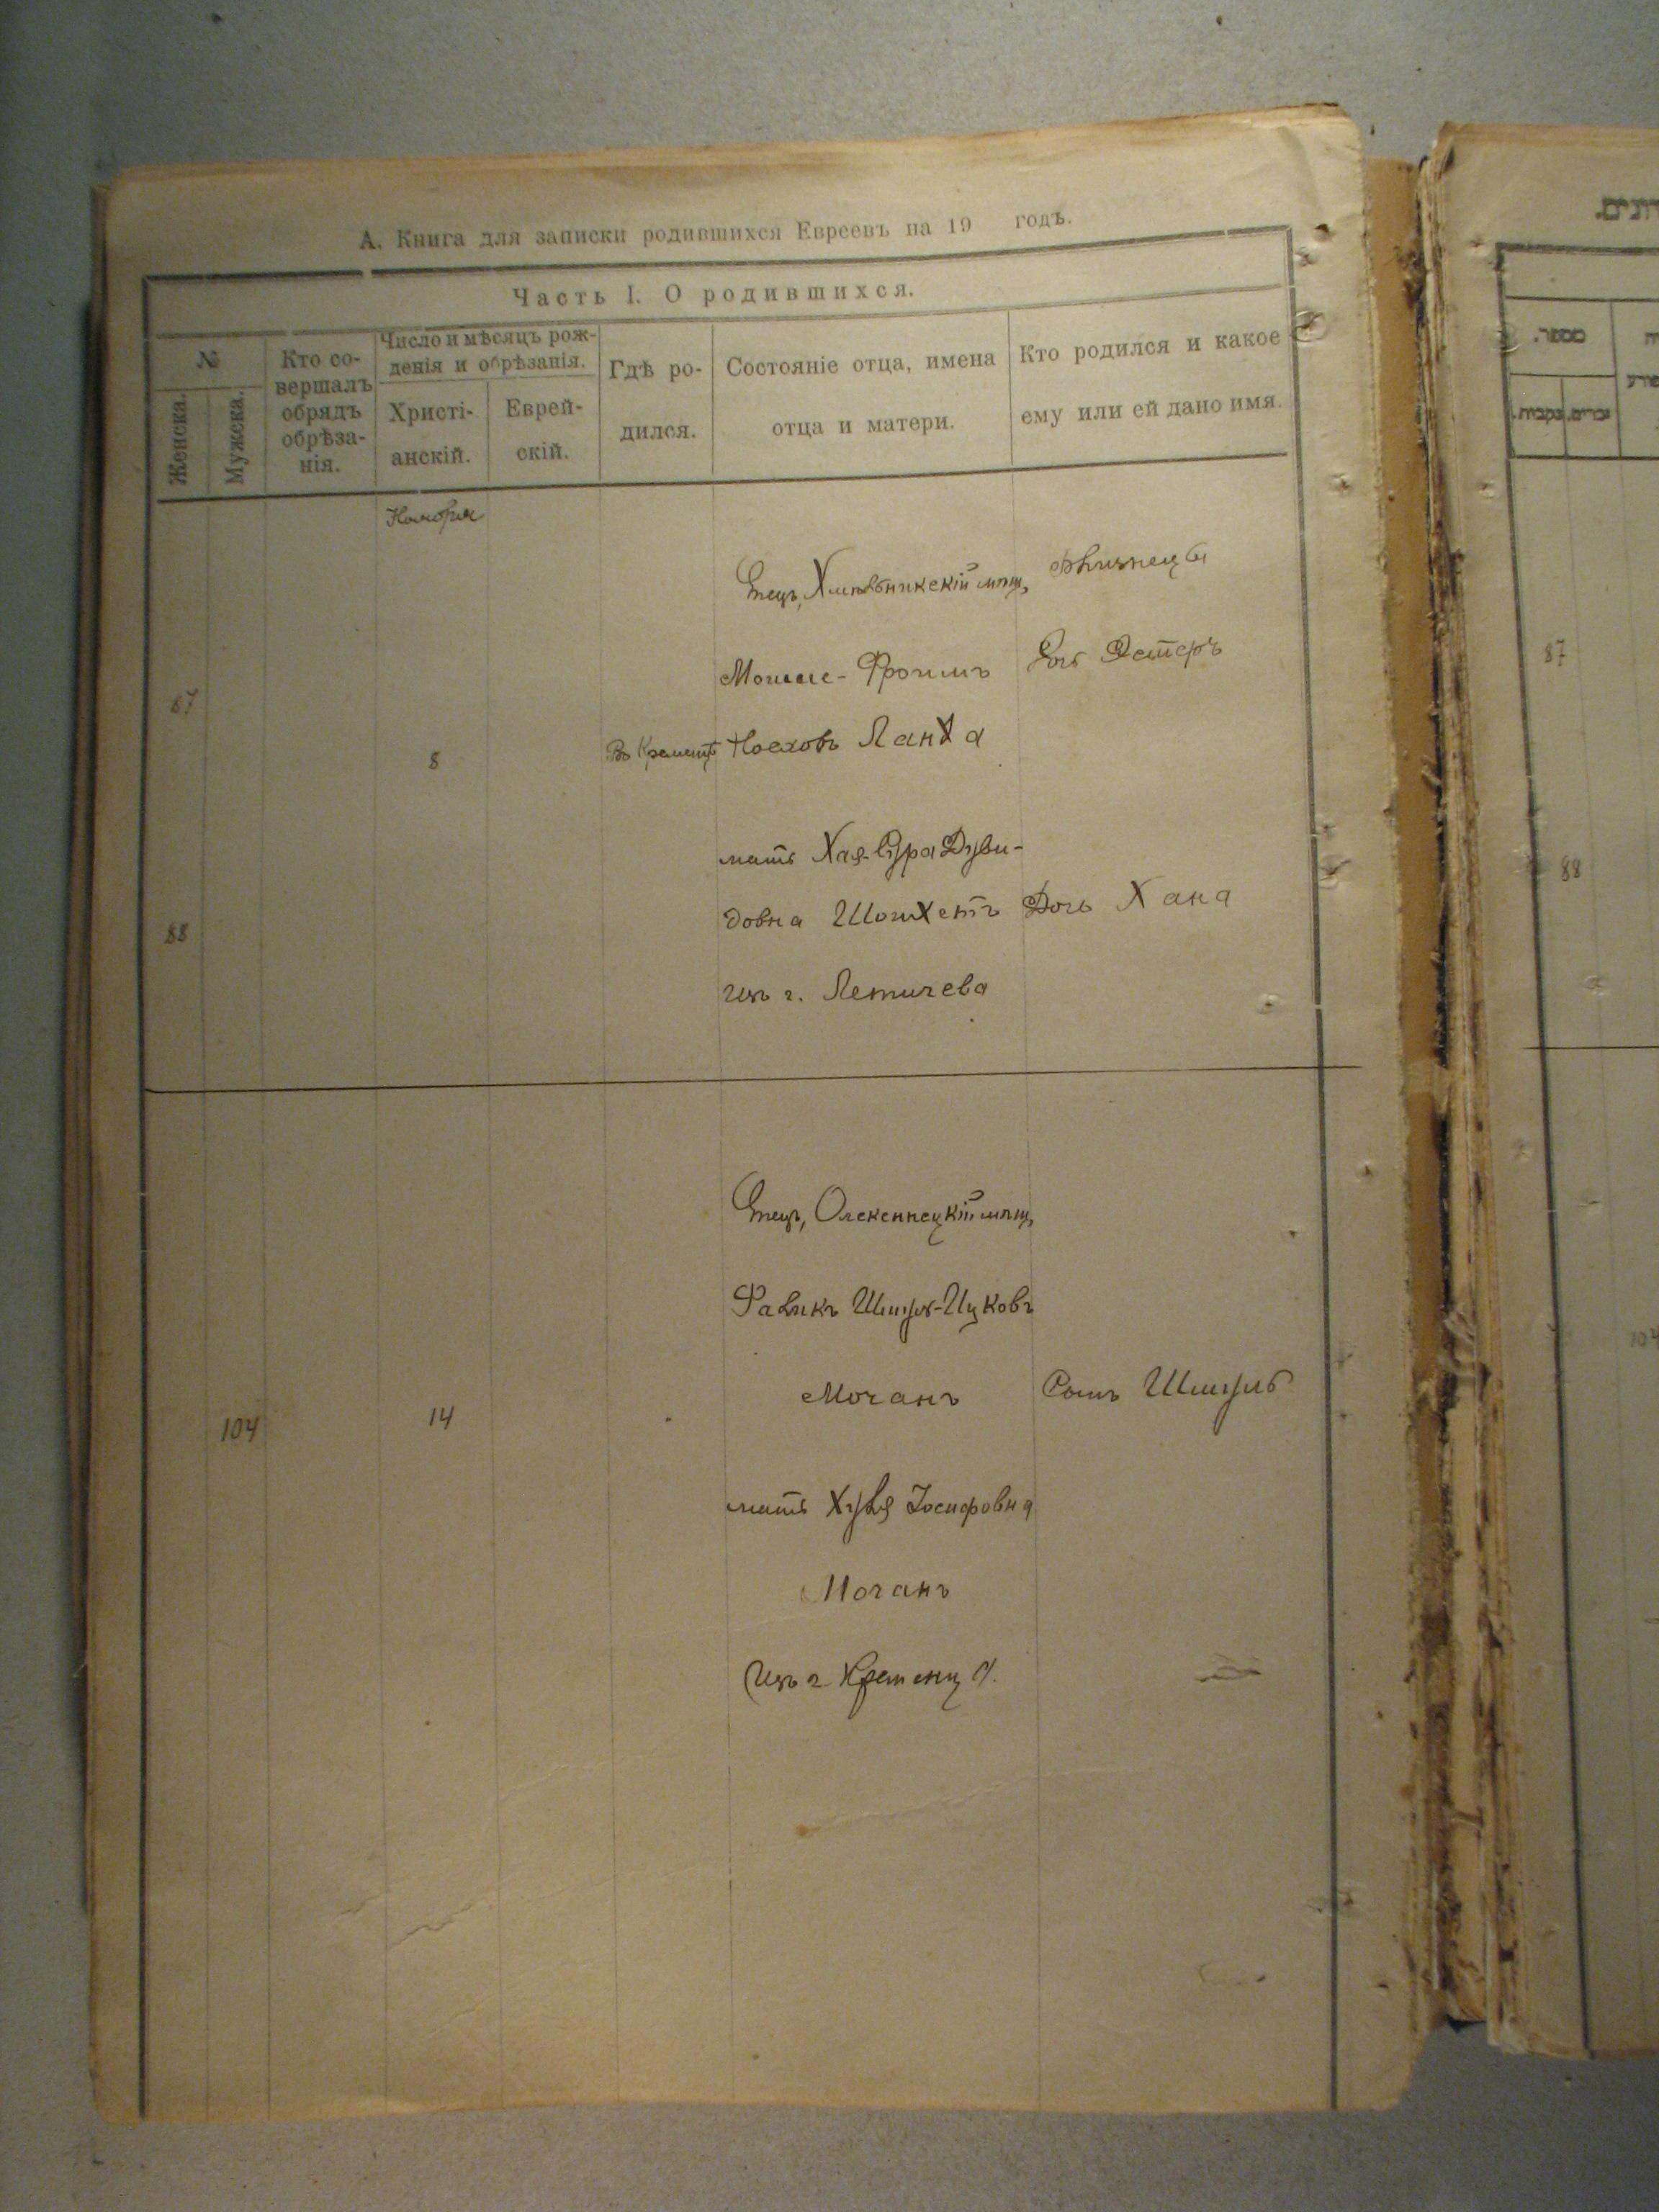 А. Книга для записки родившихся Евреевъ на 19 годъ.
Часть I. О родившихся.
№
Женска.
Мужска.
Кто со-
вершалъ
обрядъ
обрѣза-
нія.
Число и мѣсяцъ рож-
денія и обрѣзанія.
Христі-
анскій.
Еврей-
скій.
Гдѣ ро-
дился.
Состояніе отца, имена
отца и матери.
Кто родился и какое
ему или ей дано имя.
Ноября
Отецъ, Хмѣльникскій мѣщ,
Близнецы
87
Мошие-Фроимъ
Дочь Эстеръ
8
Въ Кременцѣ
Носховъ Ланда
мать Хая-Сура Дуви-
88
довна Шойхетъ
Дочь Хана
изъ г. Летичева
Отецъ, Олексинецкій мѣщ,
Шмуль-Ицковъ
104
14
Мочанъ
Сынъ Шмуль
мать Іосифовна
Мочанъ
изъ г. Кременца.
מספר.
נקבות.
זכרים.
87
88
104